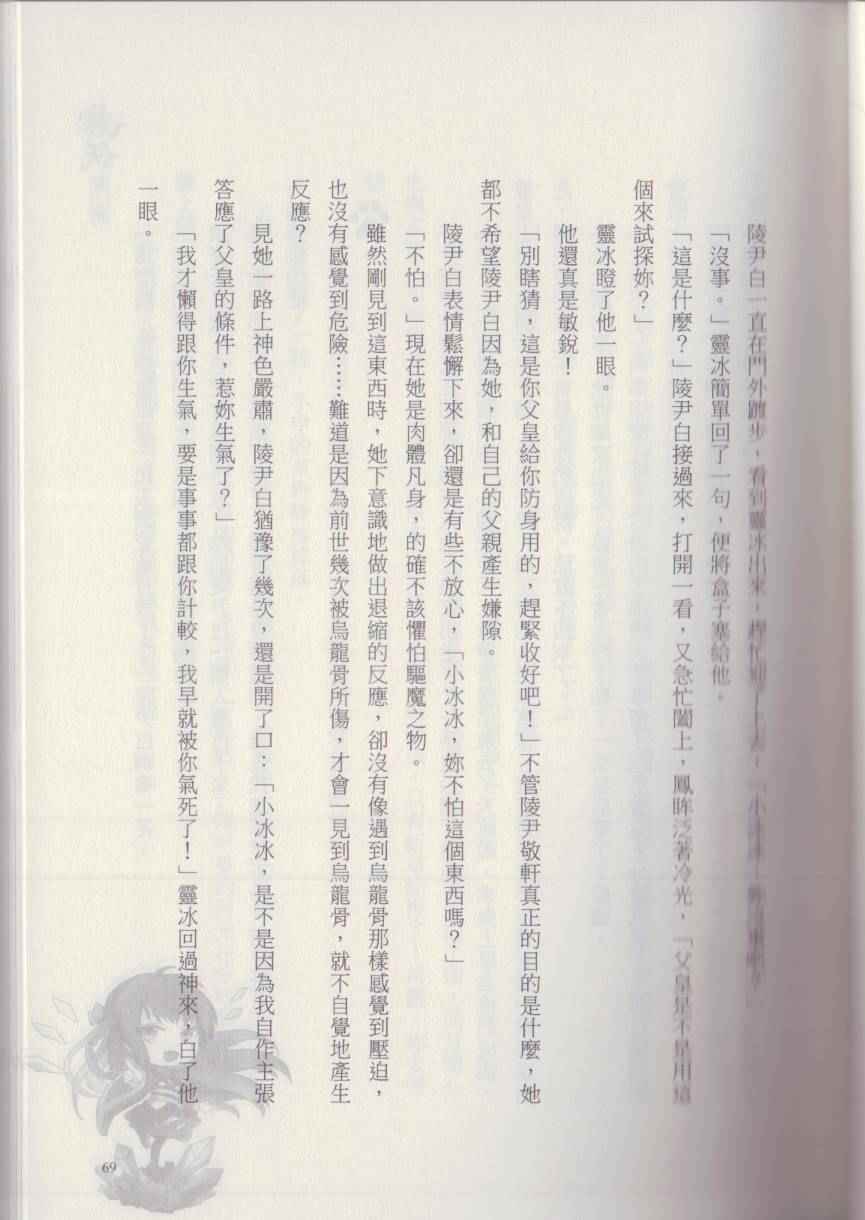 陵尹白一直在門外踱步，看到靈冰出來，趕忙
「沒事。」靈冰簡單回了一句，便將盒子塞給他。
「這是什麼？」陵尹白接過來，打開一看，又急忙闔上，鳳眸泛著冷光，「父皇是不是用這
個來試探妳？」
靈冰瞪了他一眼。
他還真是敏銳！
「別瞎猜，這是你父皇給你防身用的，趕緊收好吧！」不管陵尹敬軒真正的目的是什麼，她
都不希望陵尹白因為她，和自己的父親產生嫌隙。
陵尹白表情鬆懈下來，卻還是有些不放心，「小冰冰，妳不怕這個東西嗎？」
「不怕。」現在她是肉體凡身，的確不該懼怕驅魔之物。
雖然剛見到這東西時，她下意識地做出退縮的反應，卻沒有像遇到烏龍骨那樣感覺到壓迫，
也沒有感覺到危險……難道是因為前世幾次被烏龍骨所傷，才會一見到烏龍骨，就不自覺地產生
反應？
見她一路上神色嚴肅，陵尹白猶豫了幾次，還是開了口：「小冰冰，是不是因為我自作主張
答應了父皇的條件，惹妳生氣了？」
「我才懶得跟你生氣，要是事事都跟你計較，我早就被你氣死了！」靈冰回過神來，白了他
一眼。
69